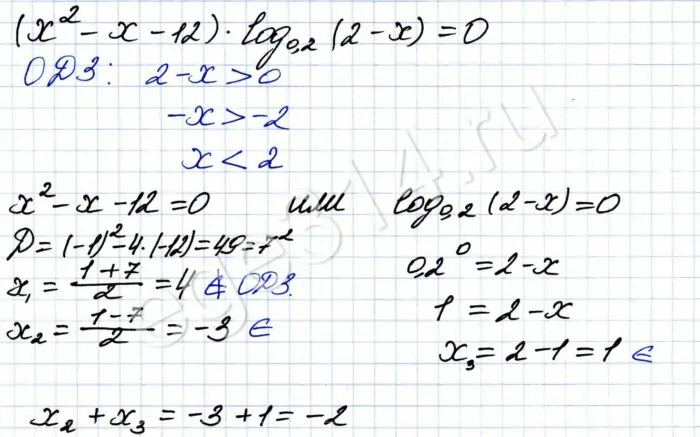 (x² - x - 12) · log₀,₂ (2 - x) = 0
ОДЗ: 2 - x > 0
-x > -2
x < 2
x² - x - 12 = 0 или log₀,₂ (2 - x) = 0
D = (-1)² - 4·(-12) = 49 = 7²
x₁ = (1 + 7)/2 = 4 ∉ ОДЗ.
x₂ = (1 - 7)/2 = -3 ∈
0,2⁰ = 2 - x
1 = 2 - x
x₃ = 2 - 1 = 1 ∈
x₂ + x₃ = -3 + 1 = -2